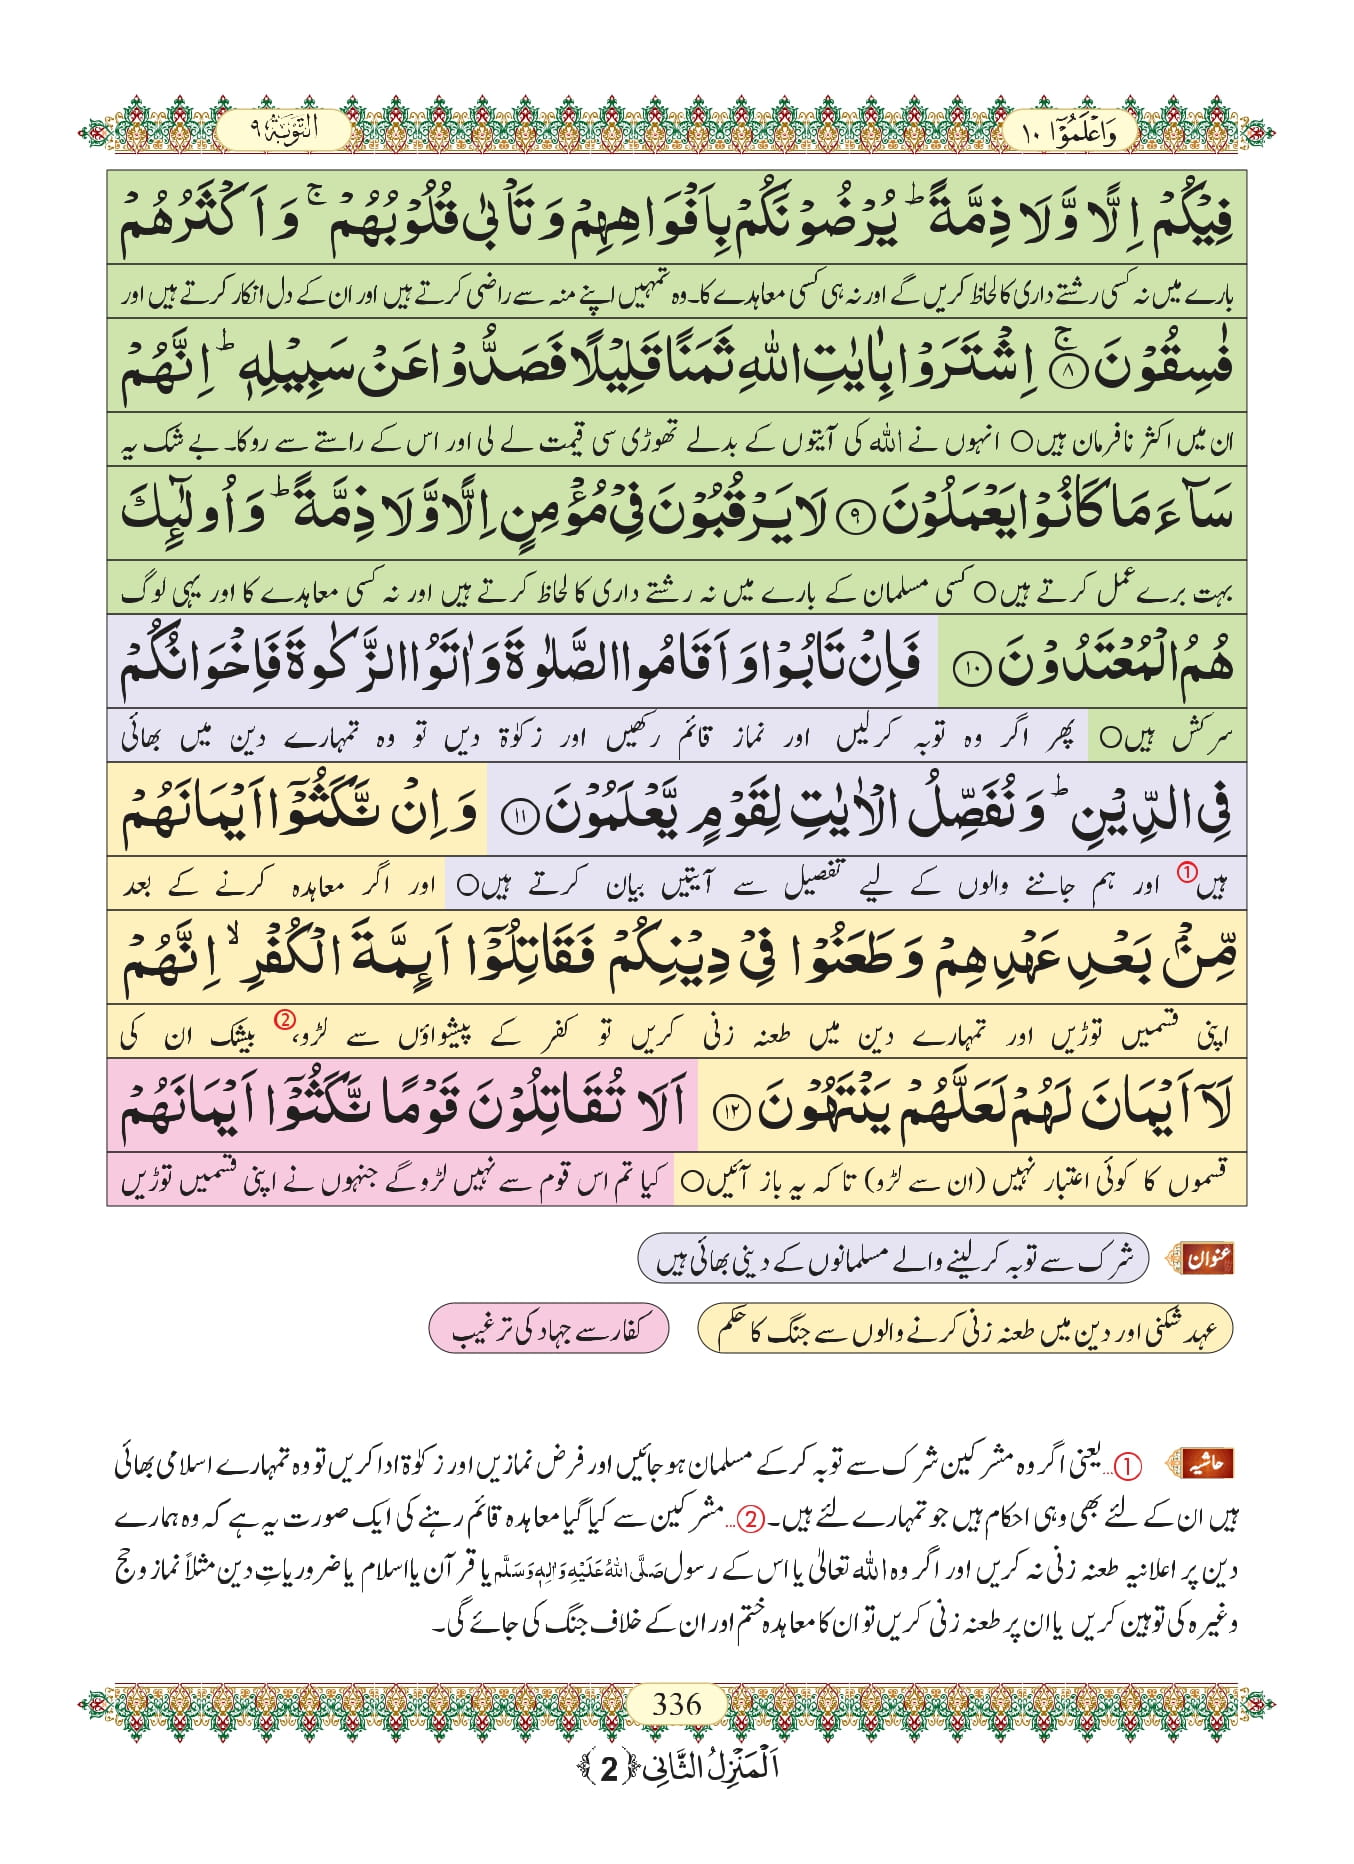 وَاعْلَمُوْۤا ١٠
التَّوْبَة ٩
فِیْكُمْ اِلًّا وَّلَا ذِمَّةًؕ یُرْضُوْنَكُمْ بِاَفْوَاهِهِمْ وَتَاْبٰى قُلُوْبُهُمْۚ وَاَكْثَرُهُمْ
بارے میں نہ کسی رشتے داری کا لحاظ کریں گے اور نہ ہی کسی معاہدے کا۔ وہ تمہیں اپنے منہ سے راضی کرتے ہیں اور ان کے دل انکار کرتے ہیں اور
فٰسِقُوْنَۚ۝٨ اِشْتَرَوْا بِاٰیٰتِ اللّٰهِ ثَمَنًا قَلِیْلًا فَصَدُّوْا عَنْ سَبِیْلِهٖؕ اِنَّهُمْ
ان میں اکثر نافرمان ہیں○ انہوں نے اللہ کی آیتوں کے بدلے تھوڑی سی قیمت لے لی اور اس کے راستے سے روکا۔ بے شک یہ
سَآءَ مَا كَانُوْا یَعْمَلُوْنَ۝٩ لَا یَرْقُبُوْنَ فِیْ مُؤْمِنٍ اِلًّا وَّلَا ذِمَّةًؕ وَاُولٰٓىٕكَ
بہت برے عمل کرتے ہیں○ کسی مسلمان کے بارے میں نہ رشتے داری کا لحاظ کرتے ہیں اور نہ کسی معاہدے کا اور یہی لوگ
هُمُ الْمُعْتَدُوْنَ۝١٠ فَاِنْ تَابُوْا وَاَقَامُوا الصَّلٰوةَ وَاٰتَوُا الزَّكٰوةَ فَاِخْوَانُكُمْ
سرکش ہیں○ پھر اگر وہ توبہ کرلیں اور نماز قائم رکھیں اور زکوٰۃ دیں تو وہ تمہارے دین میں بھائی
فِی الدِّیْنِؕ وَنُفَصِّلُ الْاٰیٰتِ لِقَوْمٍ یَّعْلَمُوْنَ۝١١ وَاِنْ نَّكَثُوْۤا اَیْمَانَهُمْ
ہیں① اور ہم جاننے والوں کے لیے تفصیل سے آیتیں بیان کرتے ہیں○ اور اگر معاہدہ کرنے کے بعد
مِّنْۢ بَعْدِ عَهْدِهِمْ وَطَعَنُوْا فِیْ دِیْنِكُمْ فَقَاتِلُوْۤا اَىٕمَّةَ الْكُفْرِۙ اِنَّهُمْ
اپنی قسمیں توڑیں اور تمہارے دین میں طعنہ زنی کریں تو کفر کے پیشواؤں سے لڑو،② بیشک ان کی
لَاۤ اَیْمَانَ لَهُمْ لَعَلَّهُمْ یَنْتَهُوْنَ۝١٢ اَلَا تُقَاتِلُوْنَ قَوْمًا نَّكَثُوْۤا اَیْمَانَهُمْ
قسموں کا کوئی اعتبار نہیں (ان سے لڑو) تاکہ یہ باز آئیں○ کیا تم اس قوم سے نہیں لڑو گے جنہوں نے اپنی قسمیں توڑیں
عنوان شرک سے توبہ کرلینے والے مسلمانوں کے دینی بھائی ہیں
عہد شکنی اور دین میں طعنہ زنی کرنے والوں سے جنگ کا حکم کفار سے جہاد کی ترغیب
حاشیہ ①...یعنی اگر وہ مشرکین شرک سے توبہ کرکے مسلمان ہو جائیں اور فرض نمازیں اور زکوٰۃ ادا کریں تو وہ تمہارے اسلامی بھائی
ہیں ان کے لئے بھی وہی احکام ہیں جو تمہارے لئے ہیں۔②...مشرکین سے کیا گیا معاہدہ قائم رہنے کی ایک صورت یہ ہے کہ وہ ہمارے
دین پر اعلانیہ طعنہ زنی نہ کریں اور اگر وہ اللہ تعالیٰ یا اس کے رسول صَلَّی اللہُ عَلَیْہِ وَاٰلِہٖ وَسَلَّم یا قرآن یا اسلام یا ضروریاتِ دین مثلاً نماز و حج
وغیرہ کی توہین کریں یا ان پر طعنہ زنی کریں تو ان کا معاہدہ ختم اور ان کے خلاف جنگ کی جائے گی۔
336
اَلْمَنْزِلُ الثَّانِی ﴿2﴾